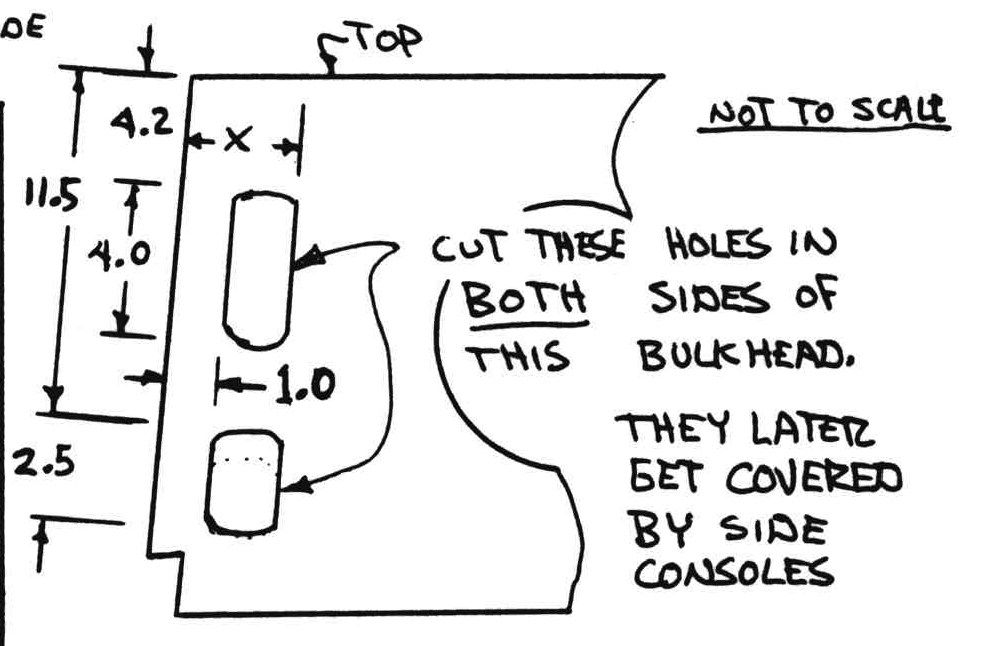 DE
TOP
4.2
NOT TO SCALE
X
11.5
4.0
CUT THESE HOLES IN
BOTH SIDES OF
THIS BULKHEAD.
1.0
THEY LATER
GET COVERED
BY SIDE
CONSOLES
2.5